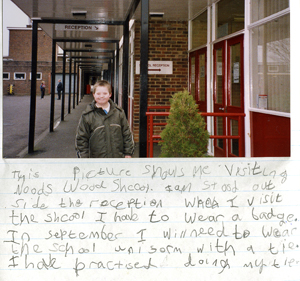 RECEPTION
RECEPTION
This Picture shows me visiting
Woods Wood Shcool. I am Stood out
Side the reception when I visit
the shcool I have to wear a badge.
In september I will need to wear
the school uniform with a tie.
I have practised doing my tie